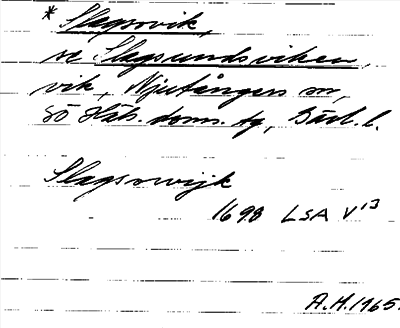 * Slagsvik,
se Slagsundsviken,
vik, Njutångers sn,
SÖ Häls. doms. tg, Gävl. l.
Slagsswijk
1698 LSA V 13
A.H. 1965.